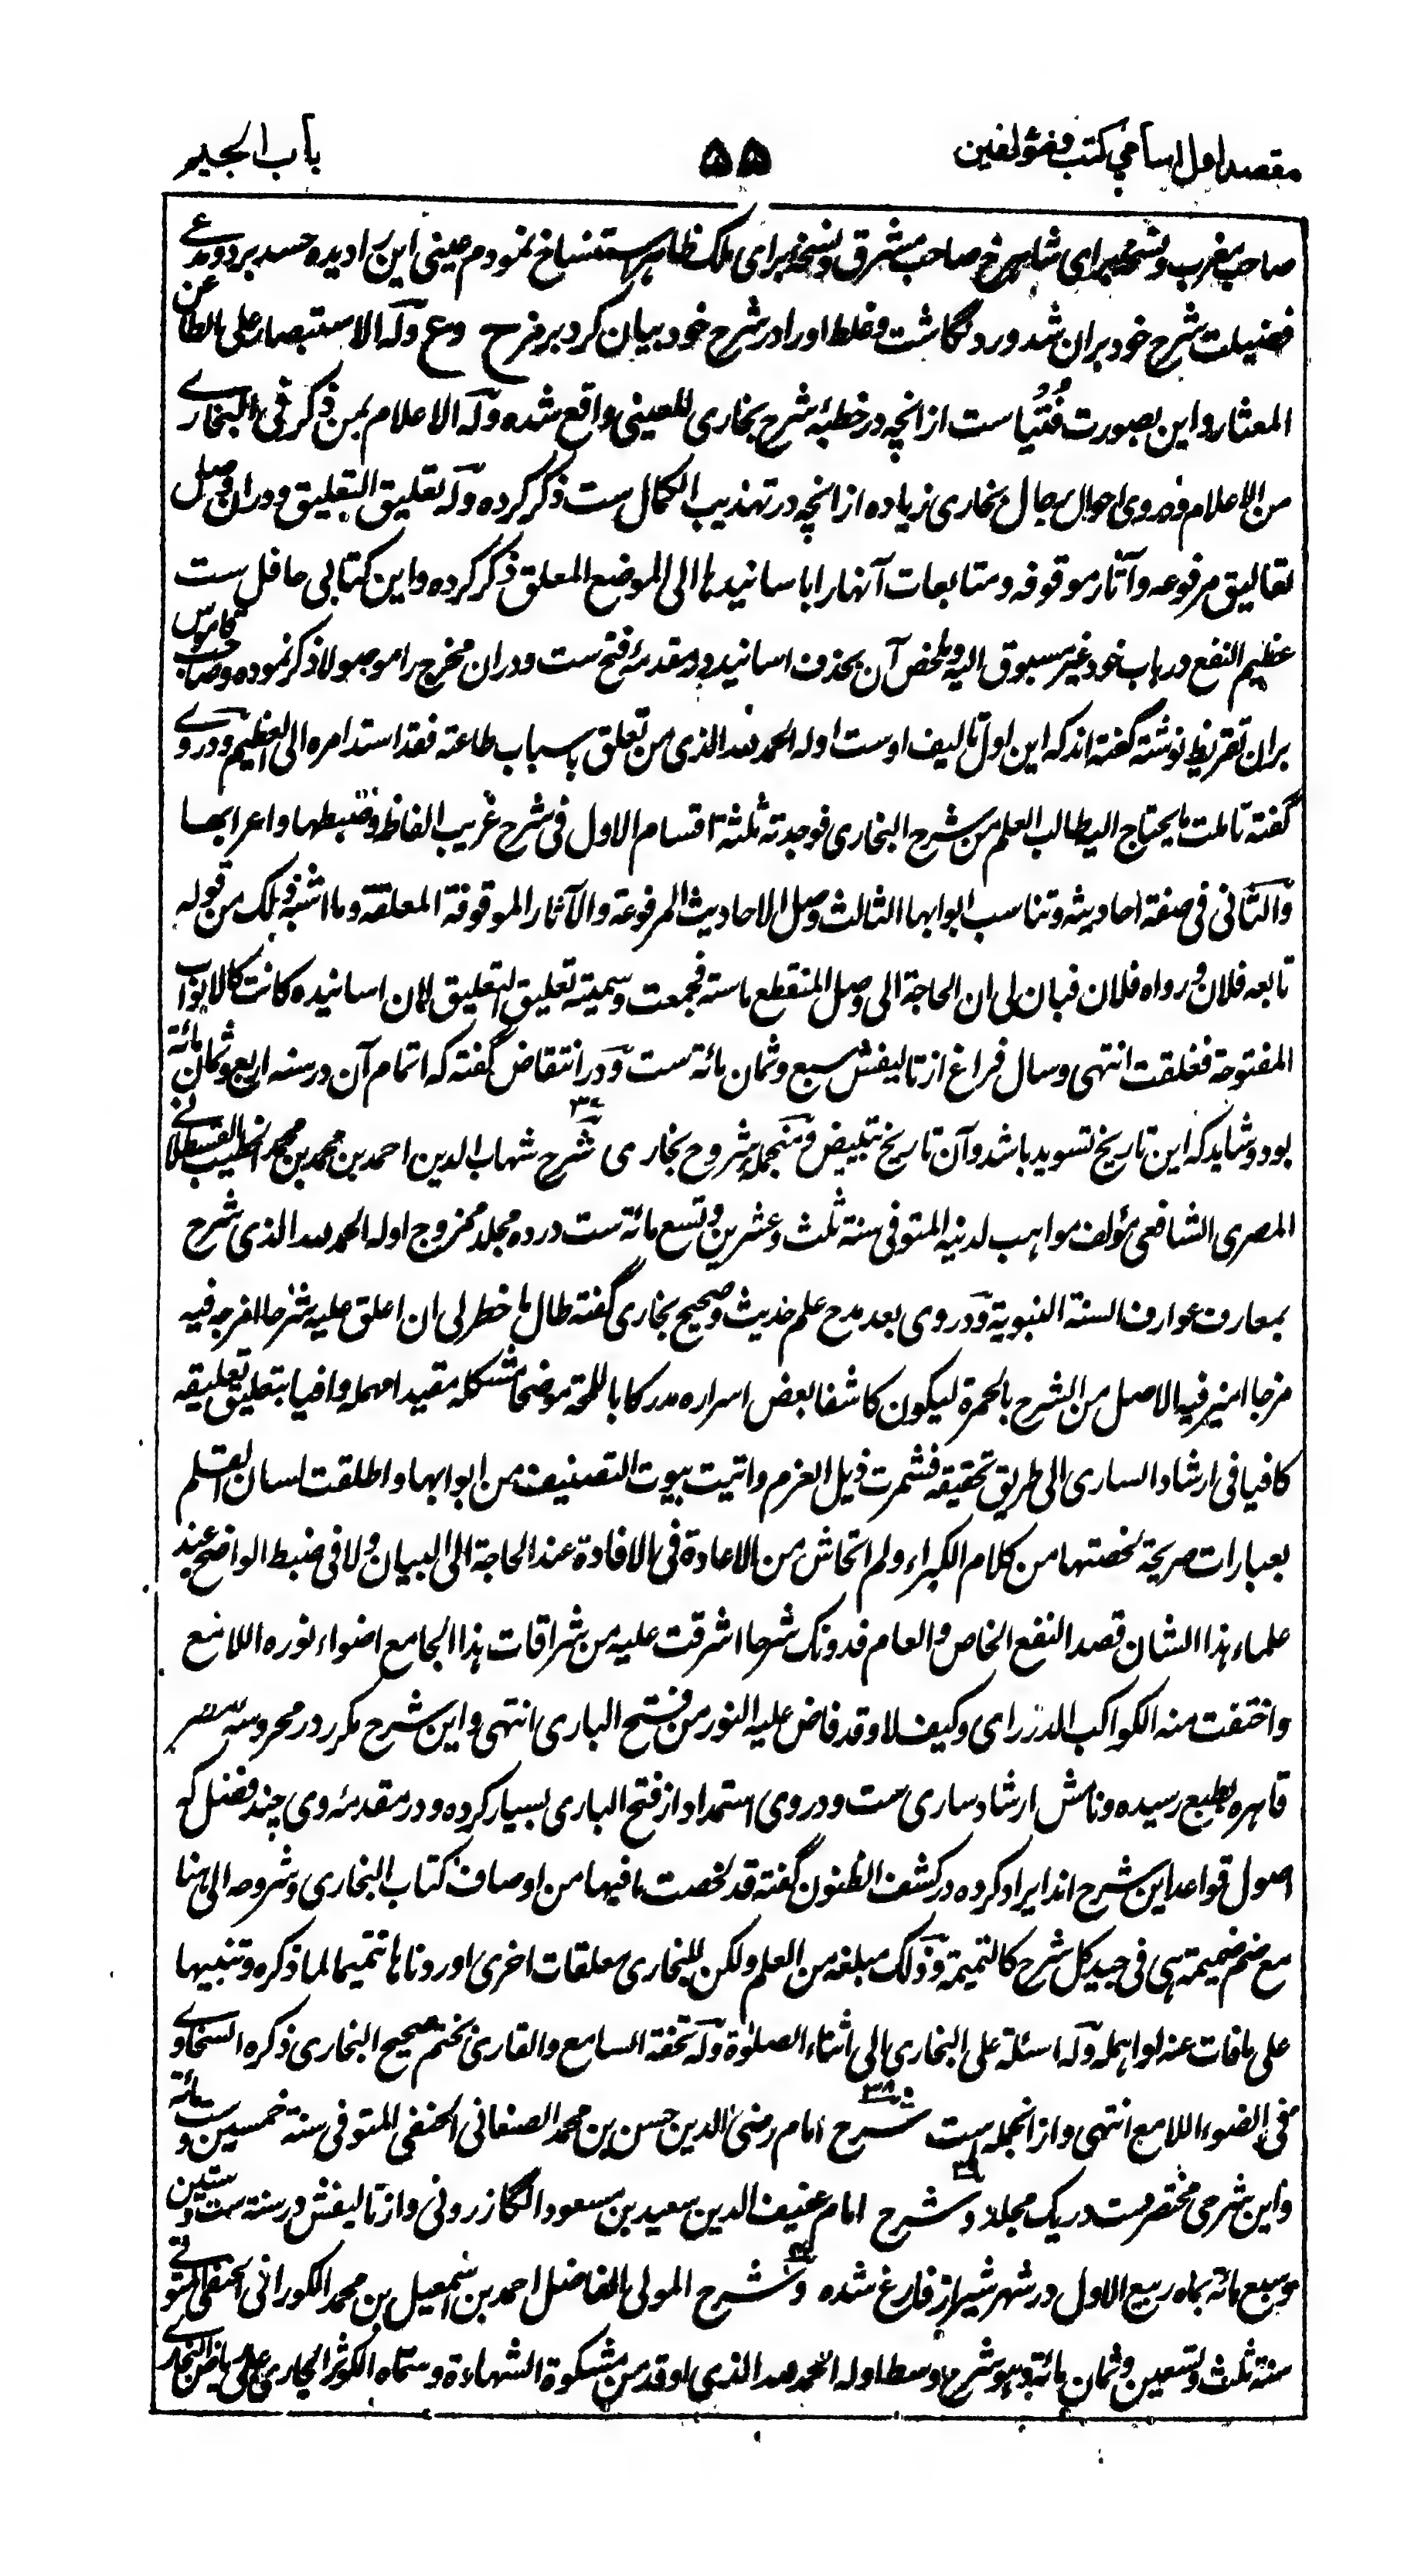 مقصد اول اسامي كتب ومؤلفين
۵۵
باب الجيم
صاحب مغرب ونسخه برای شاهرخ صاحب مشرق ونسخه برای ملک ظاهر استنساخ نمودم عینی این را دیده حسد برد ومدعی
فضیلت شرح خود بران شد ورد نگاشت وغلط او را در شرح خود بیان کرد بر مزح وع وله الاستبصار علی الطاعن
المعثار واین بصورت فُتْیا ست ازانچه در خطبۂ شرح بخاری للعینی واقع شده وله الاعلام بمن ذکر فی البخاری
من الاعلام ودروی احوال رجال بخاری زیاده ازانچه در تهذیب الکمال ست ذکر کرده وله تعلیق التعلیق ودران وصل
تعالیق مرفوعه وآثار موقوفه ومتابعات آنها را با سانیدها الی الموضع المعلق ذکر کرده واین کتابی حافل ست
عظیم النفع در باب خود غیر مسبوق الیه وملخص آن بحذف اسانید در مقدمۂ فتح ست ودران مخرج را موصولا ذکر نموده وصاحب قاموس
بران تقریظ نوشته گفته اند که این اول تالیف اوست اوله الحمد لله الذی من تعلق باسباب طاعته فقد استند امره الی العظیم ودروی
گفته تاملت ما یحتاج الیه طالب العلم من شرح البخاری فوجدته ثلثة اقسام الاول فی شرح غریب الفاظه وضبطها واعرابها
والثانی فی صفة احادیثه وتناسب ابوابها الثالث وصل الاحادیث المرفوعة والآثار الموقوفة المعلقة وما اشبه ذلک من قوله
تابعه فلان ورواه فلان فبان لی ان الحاجة الی وصل المنقطع ماسته فجمعت وسمیته تعلیق التعلیق لان اسانیده کانت کالابواب
المفتوحة فغلقت انتهی وسال فراغ از تالیفش سبع وثمان مائة ست ودر انتقاض گفته که اتمام آن در سنه اربع وثمان مائة
بود وشاید که این تاریخ تسوید باشد وآن تاریخ تبییض ومنجمله شروح بخاری ۳۷ شرح شهاب الدین احمد بن محمد بن محمد الخطیب القسطلانی
المصری الشافعی مؤلف مواهب لدنیه المتوفی سنة ثلث وعشرین وتسع مائة ست در ده مجلد ممزوج اوله الحمد لله الذی شرح
بمعارف عوارف السنة النبویة ودروی بعد مدح علم حدیث وصحیح بخاری گفته طال ما خطر لی ان اعلق علیه شرحا امزجه فیه
مزجا امیز فیه الاصل من الشرح بالحمرة لیکون کاشفا بعض اسراره مدرکا باللمحة موضحا مشکله مقیدا مهمله وافیا بتعلیق تعلیقه
کافیا فی ارشاد الساری الی طریق تحقیقه فشمرت ذیل العزم واتیت بیوت التصنیف من ابوابها واطلقت لسان القلم
بعبارات صریحة لخصتها من کلام الکبراء ولم اتحاش من الاعادة فی الافادة عند الحاجة الی البیان ولا فی ضبط الواضح عند
علماء هذا الشان قصد النفع الخاص والعام فدونک شرحا اشرقت علیه من شراقات هذا الجامع اضواء نوره اللامع
واختفت منه الکواکب الدراری وکیف لا وقد فاض علیه النور من فتح الباری انتهی واین شرح مکرر در محروسه مصر
قاهره بطبع رسیده ونامش ارشاد ساری ست ودروی استمداد از فتح الباری بسیار کرده ودر مقدمۂ وی چند فصل که
اصول قواعد این شرح اند ایراد کرده در کشف الظنون گفته قد لخصت ما فیها من اوصاف کتاب البخاری وشروحه الی هنا
مع ضم ضمیمة هی فی جید کل شرح کالتمیمة وذلک مبلغه من العلم ولکن للبخاری معلقات اخری اوردناها تتمیما لما ذکره وتنبیها
علی ما فات عنه لو اهمله وله اسئلة علی البخاری الی اثناء الصلوٰة وله تحفة السامع والقاری بختم صحیح البخاری ذکره السخاوی
فی الضوء اللامع انتهی وازانجمله است ۳۸ شرح امام رضی الدین حسن بن محمد الصنعانی الحنفی المتوفی سنة خمسین وست مائة
واین شرحی مختصر ست در یک مجلد و ۳۹ شرح امام عفیف الدین سعید بن مسعود الگازرونی واز تالیفش در سنة ست وستین
وسبع مائة بماه ربیع الاول در شهر شیراز فارغ شده و ۴۰ شرح المولی الفاضل احمد بن اسمعیل بن محمد الکورانی الحنفی المتوفی
سنة ثلث وتسعین وثمان مائة وهو شرح وسط اوله الحمد لله الذی اوقد من مشکوة الشهادة وسماه الکوثر الجاری علی ریاض البخاری